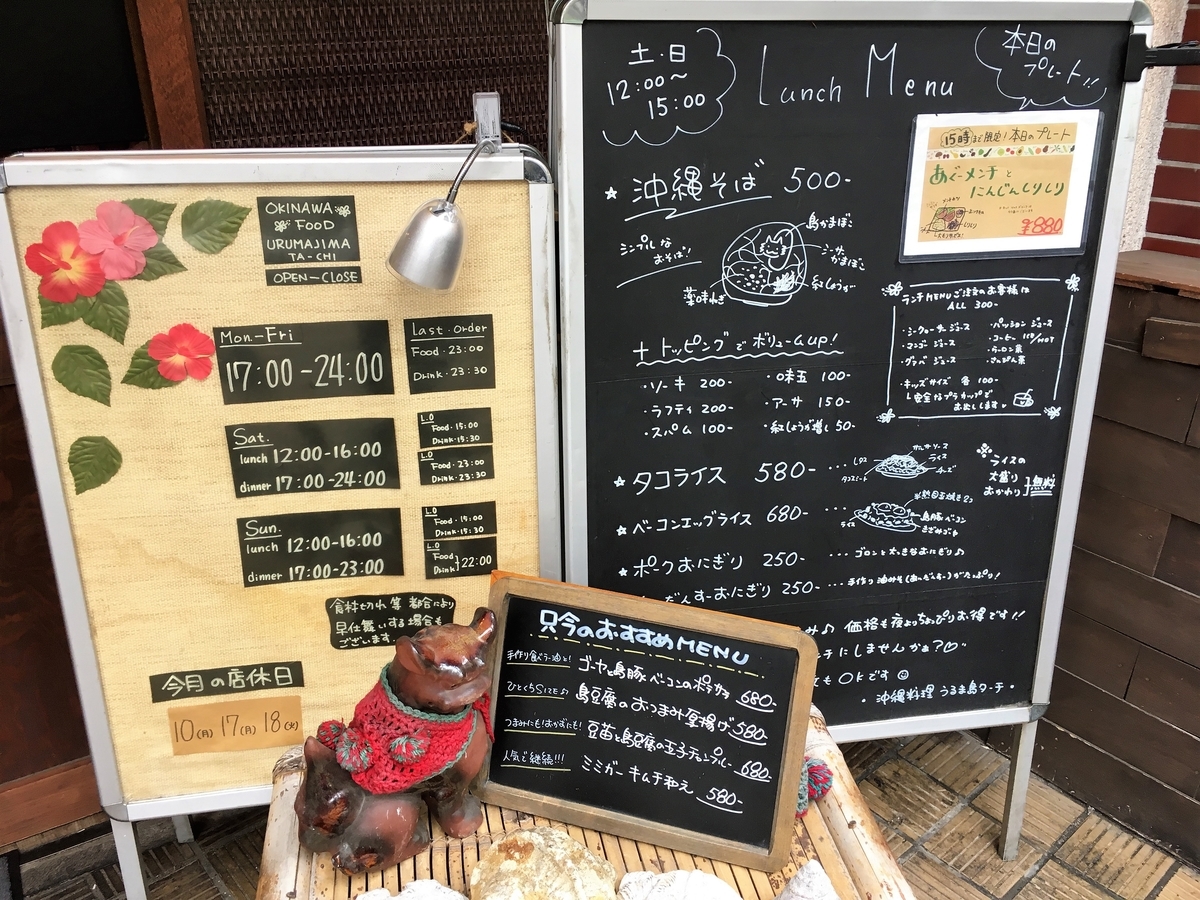 OKINAWA
FOOD
URUMAJIMA
TA-CHI
OPEN-CLOSE
Mon-Fri
17:00-24:00
Last.Order
Food・23:00
Drink・23:30
Sat.
lunch 12:00-16:00
dinner 17:00-24:00
L.O
Food・15:00
Drink・15:30
L.O
Food・23:00
Drink・23:30
Sun.
lunch 12:00-16:00
dinner 17:00-23:00
L.O
Food・15:00
Drink・15:30
L.O
Food
Drink 22:00
食材切れ等都合により
早仕舞いする場合も
ございます
今月の店休日
10(月) 17(月) 18(火)
土・日
12:00〜
15:00
Lunch Menu
本日の
プレート!!
15時まで限定!本日のプレート
あぐーメンチと
にんじんしりしり
¥880
沖縄そば 500-
シンプルな
おそば!
島かまぼこ
かまぼこ
紅しょうが
薬味ねぎ
+トッピングでボリュームup!
・ソーキ 200-
・味玉 100-
・ラフティ 200-
・アーサ 150-
・スパム 100-
・紅しょうが増し 50-
ランチMENUご注文のお客様は
ALL 300-
・シークヮーサージュース
・マンゴジュース
・グァバジュース
・パッションジュース
・コーヒー ice/HOT
・さんぴん茶
・キッズサイズ 各100-
安全なプラカップで
お出しします
タコライス 580- ・・・
サルサソース
ライス
チーズ
レタス
タコミート
ライスの
大盛り
おかわり
無料
ベーコンエッグライス 680- ・・・
島豚ベーコン
ライス
ポークおにぎり 250- ・・・ ゴロンと大きなおにぎり♪
だんすーおにぎり 250- ・・・ 手作り油みそ(あんだんすー)がたっぷり!
み♪ 価格も夜よりちょっぴりお得です!!
ンチにしませんかぁ?♡
もOKです☺
・沖縄料理 うるま島ターチ・
只今のおすすめMENU
手作り食べラー油と!
ゴーヤと島豚ベーコンのポテサラ 680-
ひとくちSIZE♪
島豆腐のおつまみ厚揚げ 580-
つまみにも!おかずにも!
豆苗と島豆腐の玉子チャンプルー 680-
人気で継続!!!
ミミガーキムチ和え 580-